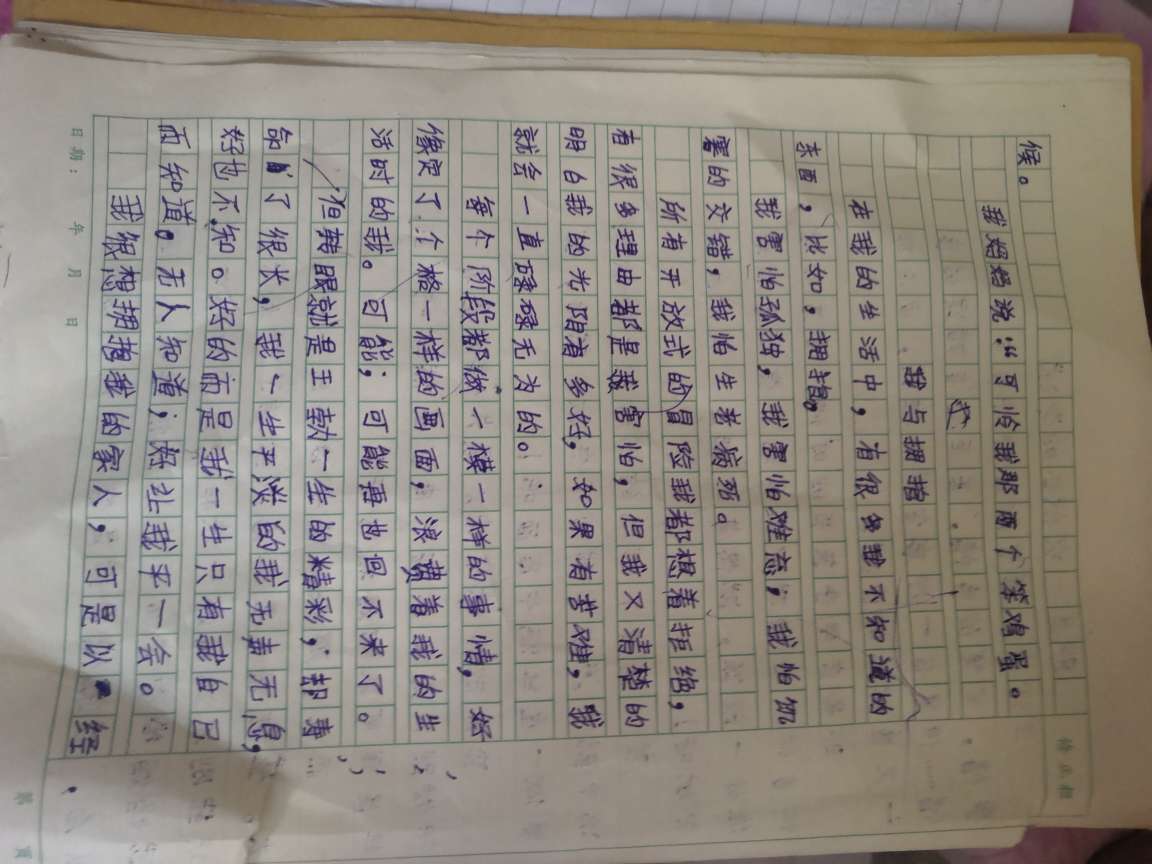 候。
我妈妈说:“可怜我那两个笨鸡蛋。
我与拥抱
在我的生活中，有很多我不知道的
东西，比如，拥抱。
我害怕孤独，我害怕难忘，我怕饥
寒的交错，我怕生老病死。
所有开放式的冒险我都想着拒绝，
有很多理由都是我害怕，但我又清楚的
明白我的光阴有多好，如果有苦难，我
就会一直碌碌无为的。
每个阶段都做一模一样的事情，好
像定了个格一样的画面，浪费着我的生
活时的我。可能；可能再也回不来了。
但转眼就是王勃一生的精彩；却寿
命了很长，我一生平淡的我无声无息，
好也不知。好的而是我一生只有我自己
而知道。无人知道；好让我平一会。
我很想拥抱我的家人，可是以经
日期： 年 月 日
第 页